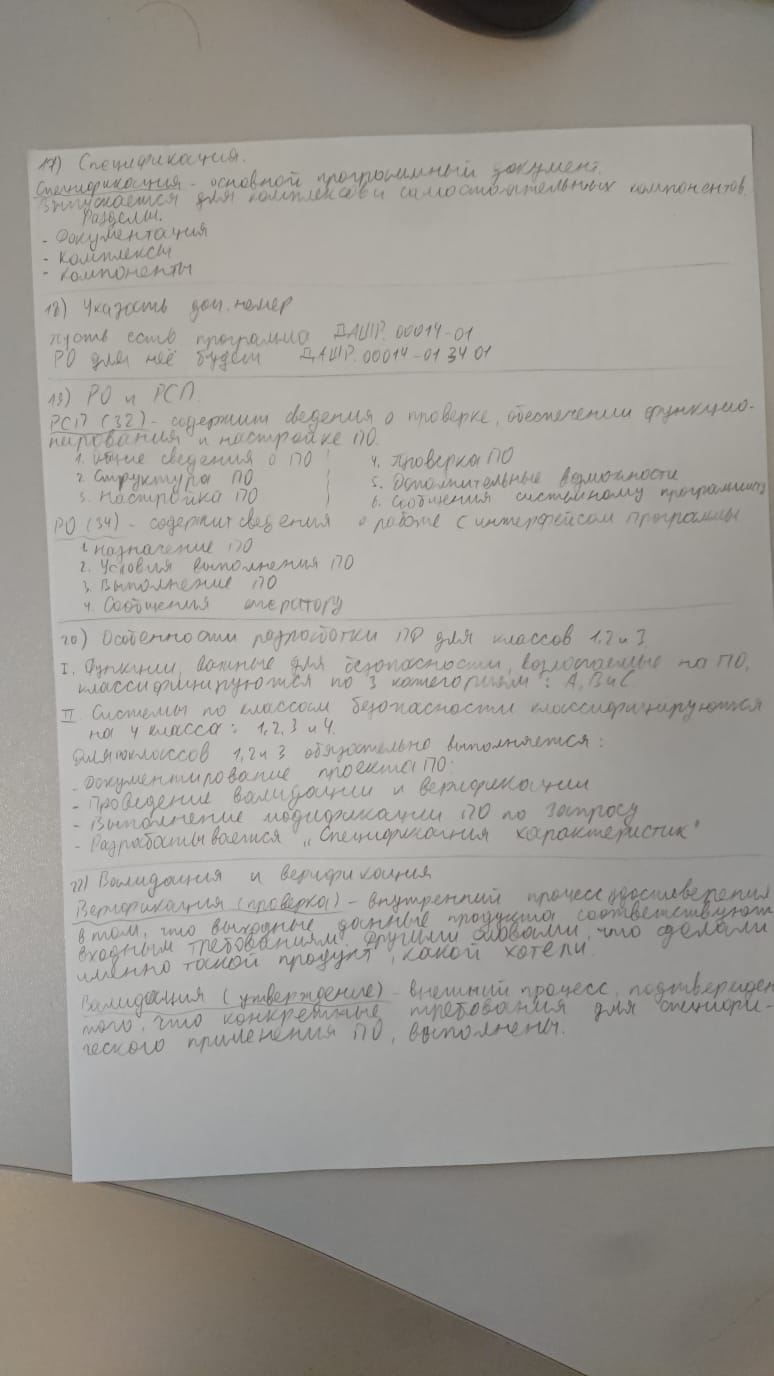 17) Спецификация.
Спецификация - основной программный документ.
Выпускается для комплексов и самостоятельных компонентов.
Разделы.
- Документация
- Комплексы
- Компоненты
18) Указать дец. номер
Пусть есть программа ДАШР.00014-01
РО для неё будет ДАШР.00014-01 34 01
19) РО и РСП.
РСП (32) - содержит сведения о проверке, обеспечении функцио-
нирования и настройке ПО.
1. Общие сведения о ПО
2. Структура ПО
3. Настройка ПО
4. Проверка ПО
5. Дополнительные возможности
6. Сообщения системному программисту
РО (34) - содержит сведения о работе с интерфейсом программы
1. Назначение ПО
2. Условия выполнения ПО
3. Выполнение ПО
4. Сообщения оператору
20) Особенности разработки ПО для классов 1, 2 и 3
I. Функции, важные для безопасности, возлагаемые на ПО,
классифицируются по 3 категориям: А, В и С
II. Системы по классам безопасности классифицируются
на 4 класса: 1, 2, 3 и 4.
Для классов 1, 2 и 3 обязательно выполняется:
- Документирование проекта ПО:
- Проведение валидации и верификации
- Выполнение модификации ПО по запросу
- Разрабатывается "Спецификация характеристик"
22) Валидация и верификация
Верификация (проверка) - внутренний процесс удостоверения
в том, что выходные данные продукта соответствуют
входным требованиям. Другими словами, что сделали
именно такой продукт, какой хотели.
Валидация (утверждение) - внешний процесс, подтвержден
того, что конкретные требования для специфи-
ческого применения ПО, выполнены.